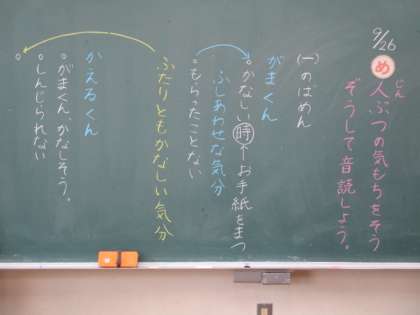 9/26
め 人ぶつの気もちをそう
じん
ぞうして音読しよう。
(一)のばめん
がまくん
。かなしい時←お手紙をまつ
ふしあわせな気分
。もらったことない
ふたりともかなしい気分
かえるくん
。がまくん、かなしそう。
。しんじられない
。